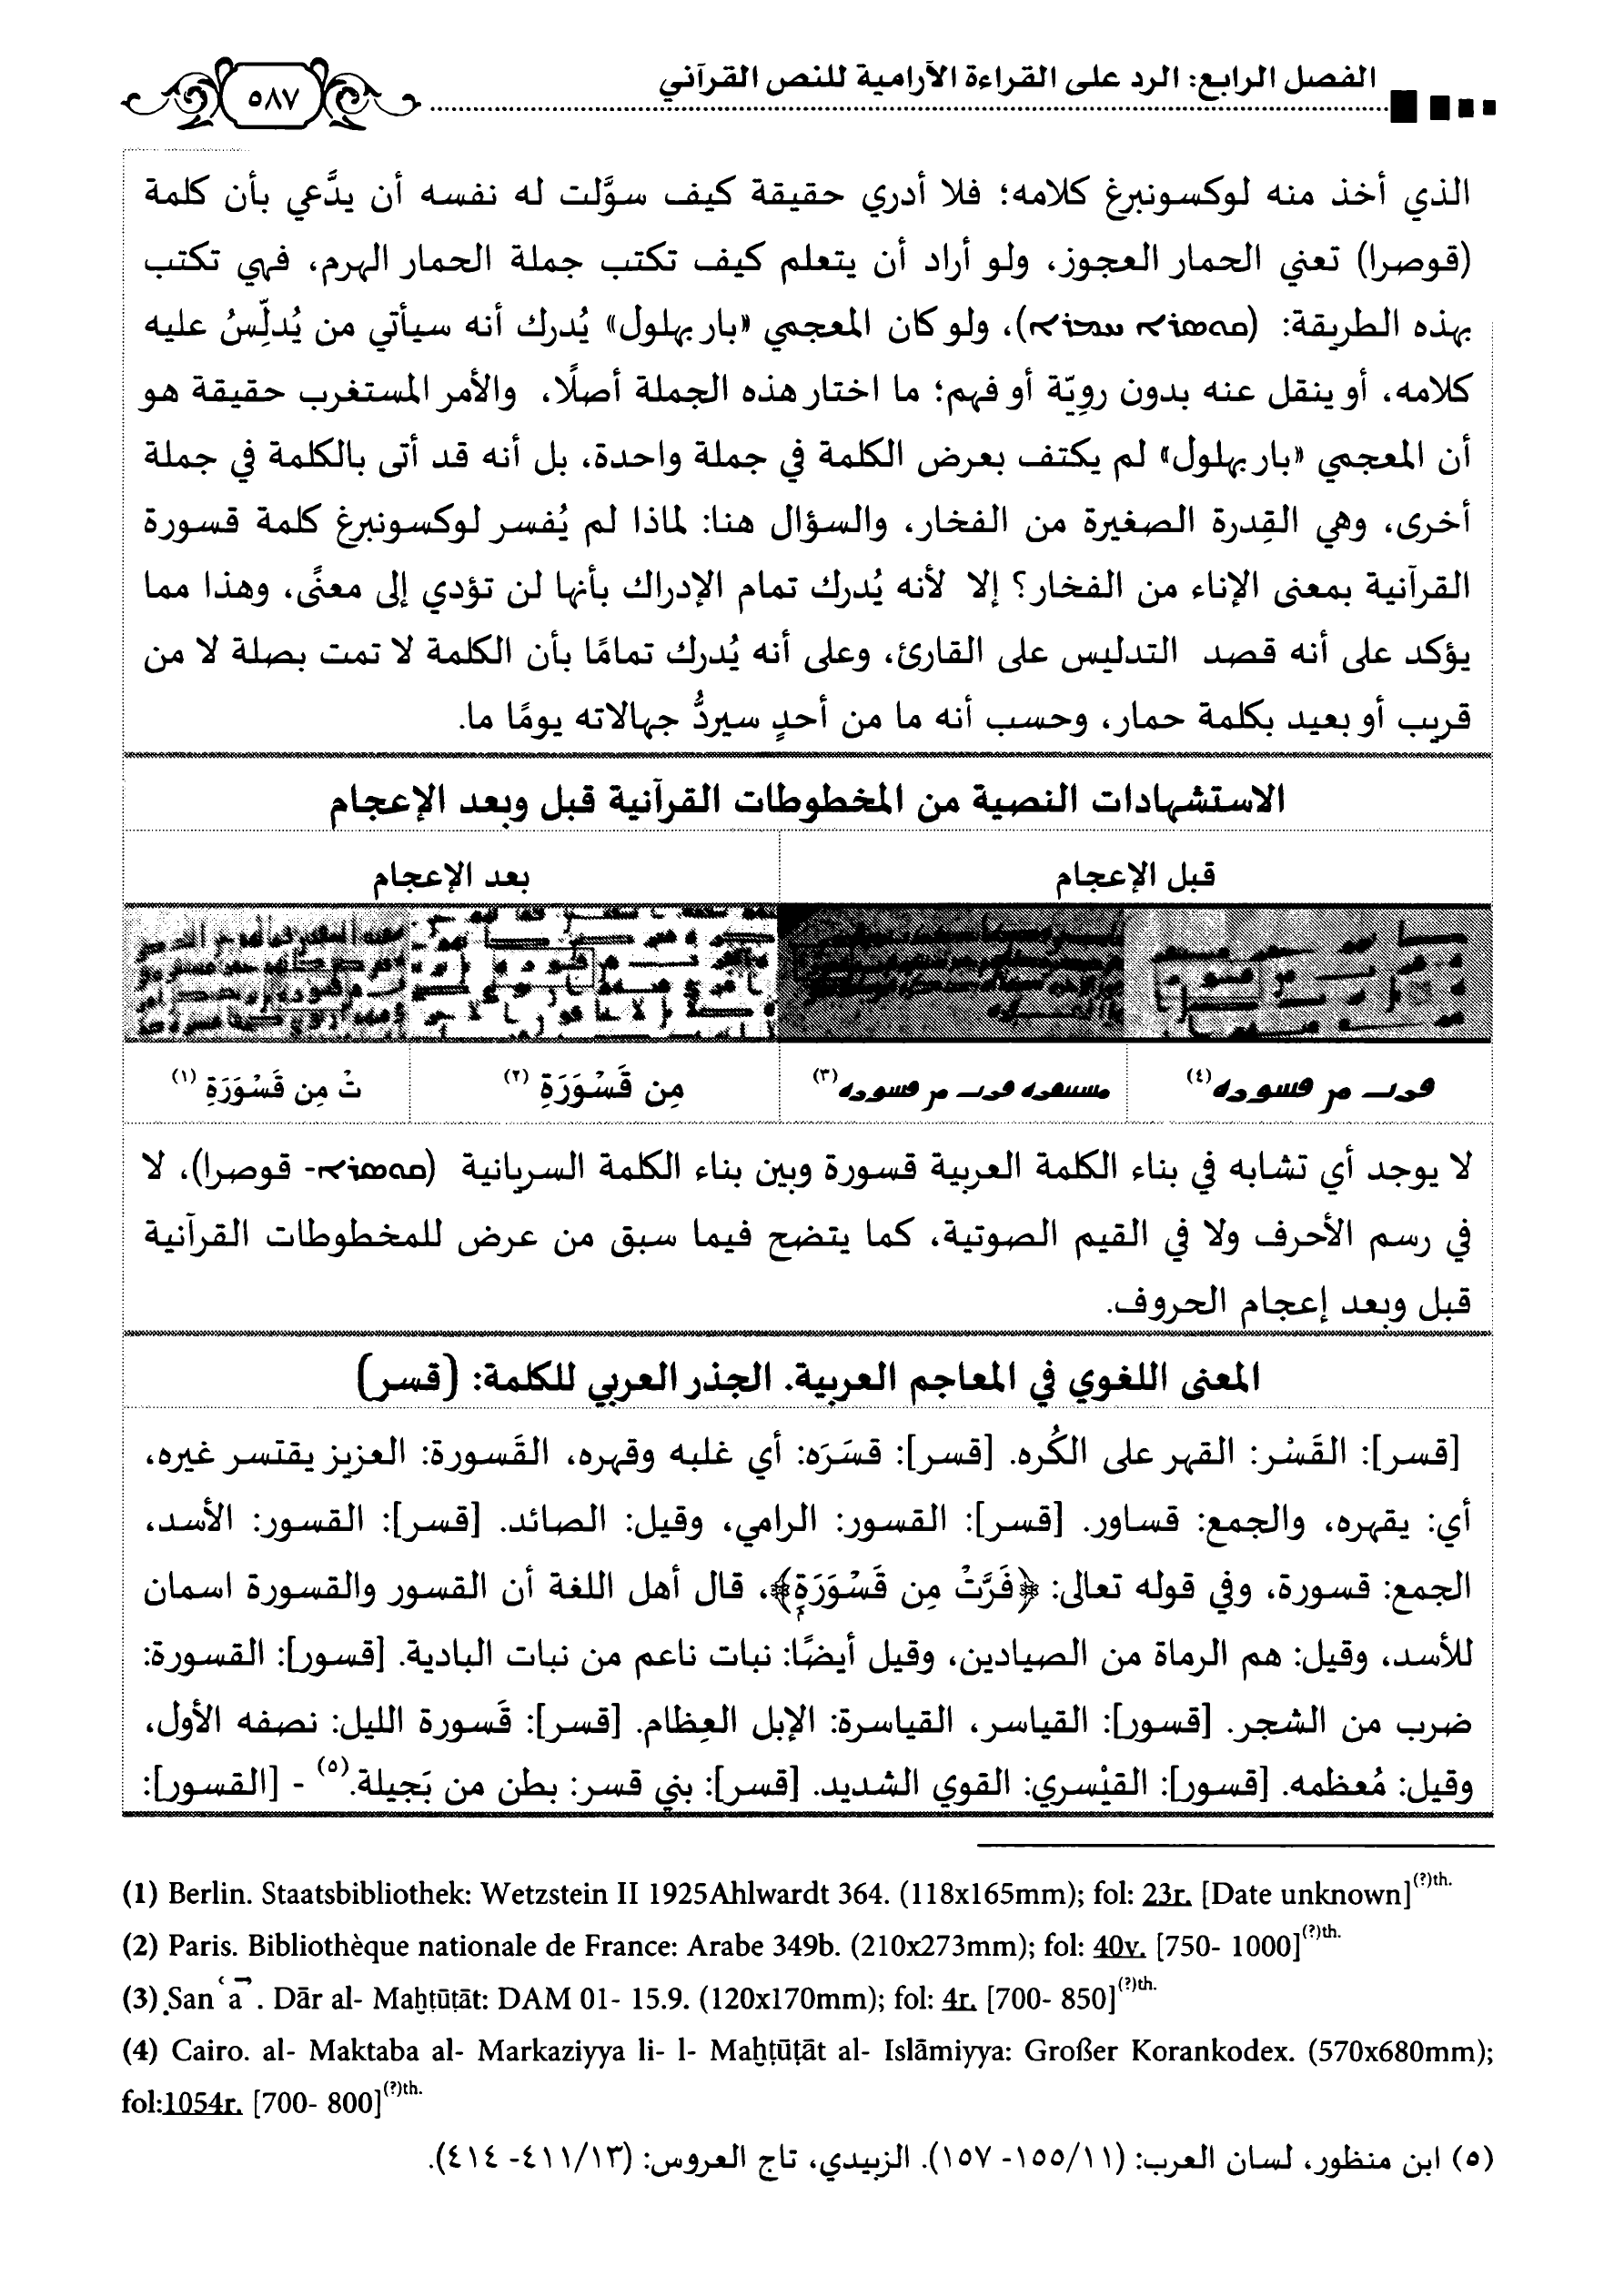 الفصل الرابع: الرد على القراءة الآرامية للنص القرآني
٥٨٧
الذي أخذ منه لوكسونبرغ كلامه؛ فلا أدري حقيقة كيف سوَّلت له نفسه أن يدَّعي بأن كلمة
(قوصرا) تعني الحمار العجوز، ولو أراد أن يتعلم كيف تكتب جملة الحمار الهرم، فهي تكتب
بهذه الطريقة: ()، ولو كان المعجمي «بار بهلول» يُدرك أنه سيأتي من يُدلِّسُ عليه
كلامه، أو ينقل عنه بدون رويّة أو فهم؛ ما اختار هذه الجملة أصلًا، والأمر المستغرب حقيقة هو
أن المعجمي «بار بهلول» لم يكتف بعرض الكلمة في جملة واحدة، بل أنه قد أتى بالكلمة في جملة
أخرى، وهي القِدرة الصغيرة من الفخار، والسؤال هنا: لماذا لم يُفسر لوكسونبرغ كلمة قسورة
القرآنية بمعنى الإناء من الفخار؟ إلا لأنه يُدرك تمام الإدراك بأنها لن تؤدي إلى معنًى، وهذا مما
يؤكد على أنه قصد التدليس على القارئ، وعلى أنه يُدرك تمامًا بأن الكلمة لا تمت بصلة لا من
قريب أو بعيد بكلمة حمار، وحسب أنه ما من أحدٍ سيردُّ جهالاته يومًا ما.
الاستشهادات النصية من المخطوطات القرآنية قبل وبعد الإعجام
قبل الإعجام
بعد الإعجام
(٤)
(٣)
مِن قَسْوَرَةِ (٢)
تْ مِن قَسْوَرَةِ (١)
لا يوجد أي تشابه في بناء الكلمة العربية قسورة وبين بناء الكلمة السريانية (ܩܘܣܪܐ- قوصرا)، لا
في رسم الأحرف ولا في القيم الصوتية، كما يتضح فيما سبق من عرض للمخطوطات القرآنية
قبل وبعد إعجام الحروف.
المعنى اللغوي في المعاجم العربية. الجذر العربي للكلمة: (قسر)
[قسر]: القَسْر: القهر على الكُره. [قسر]: قسَرَه: أي غلبه وقهره، القَسورة: العزيز يقتسر غيره،
أي: يقهره، والجمع: قساور. [قسر]: القسور: الرامي، وقيل: الصائد. [قسر]: القسور: الأسد،
الجمع: قسورة، وفي قوله تعالى: ﴿فَرَّتْ مِن قَسْوَرَةٍ﴾، قال أهل اللغة أن القسور والقسورة اسمان
للأسد، وقيل: هم الرماة من الصيادين، وقيل أيضًا: نبات ناعم من نبات البادية. [قسور]: القسورة:
ضرب من الشجر. [قسور]: القياسر، القياسرة: الإبل العِظام. [قسر]: قَسورة الليل: نصفه الأول،
وقيل: مُعظمه. [قسور]: القيْسري: القوي الشديد. [قسر]: بني قسر: بطن من بَجيلة.(٥) - [القسور]:
(1) Berlin. Staatsbibliothek: Wetzstein II 1925Ahlwardt 364. (118x165mm); fol: 23r. [Date unknown](?)th.
(2) Paris. Bibliothèque nationale de France: Arabe 349b. (210x273mm); fol: 40v. [750- 1000](?)th.
(3) Ṣanʿāʾ. Dār al- Maḫṭūṭāt: DAM 01- 15.9. (120x170mm); fol: 4r. [700- 850](?)th.
(4) Cairo. al- Maktaba al- Markaziyya li- l- Maḫṭūṭāt al- Islāmiyya: Großer Korankodex. (570x680mm);
fol:1054r. [700- 800](?)th.
(٥) ابن منظور، لسان العرب: (١١/١٥٥- ١٥٧). الزبيدي، تاج العروس: (١٣/٤١١- ٤١٤).